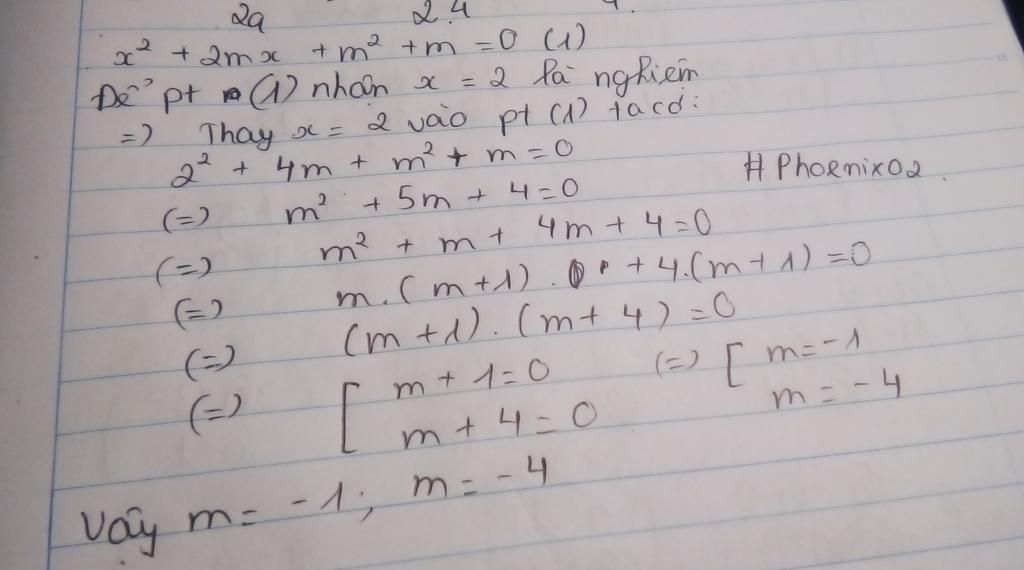 2a 2.4
x² + 2mx + m² + m = 0 (1)
Để pt (1) nhận x = 2 là nghiệm
=) Thay x = 2 vào pt (1) ta có:
2² + 4m + m² + m = 0
#Phoenix02.
(=) m² + 5m + 4 = 0
(=) m² + m + 4m + 4 = 0
(=) m.(m+1). + 4.(m+1) = 0
(=) (m+1).(m+4) = 0
(=) [ m + 1 = 0 (=) [ m = -1
m + 4 = 0 m = -4
Vậy m = -1; m = -4